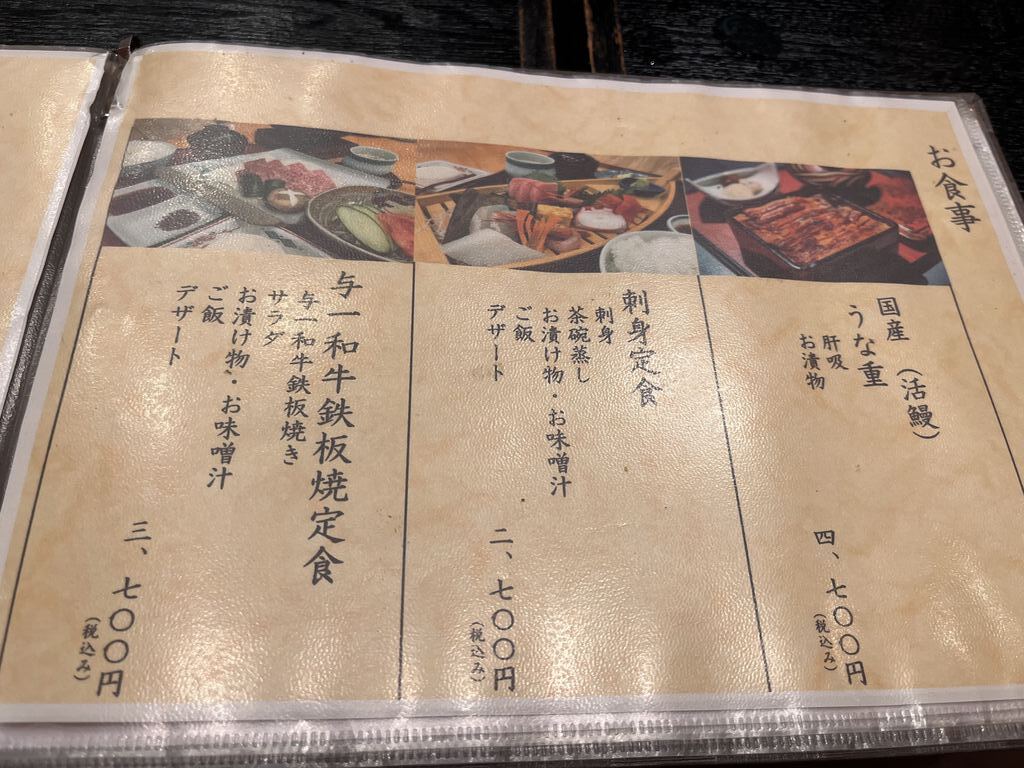 お食事
国産
うな重
(活鰻)
肝吸
お漬物
四、七〇〇円
(税込み)
刺身定食
刺身
茶碗蒸し
お漬け物・お味噌汁
ご飯
デザート
二、七〇〇円
(税込み)
与一和牛鉄板焼定食
与一和牛鉄板焼き
サラダ
お漬け物・お味噌汁
ご飯
デザート
三、七〇〇円
(税込み)